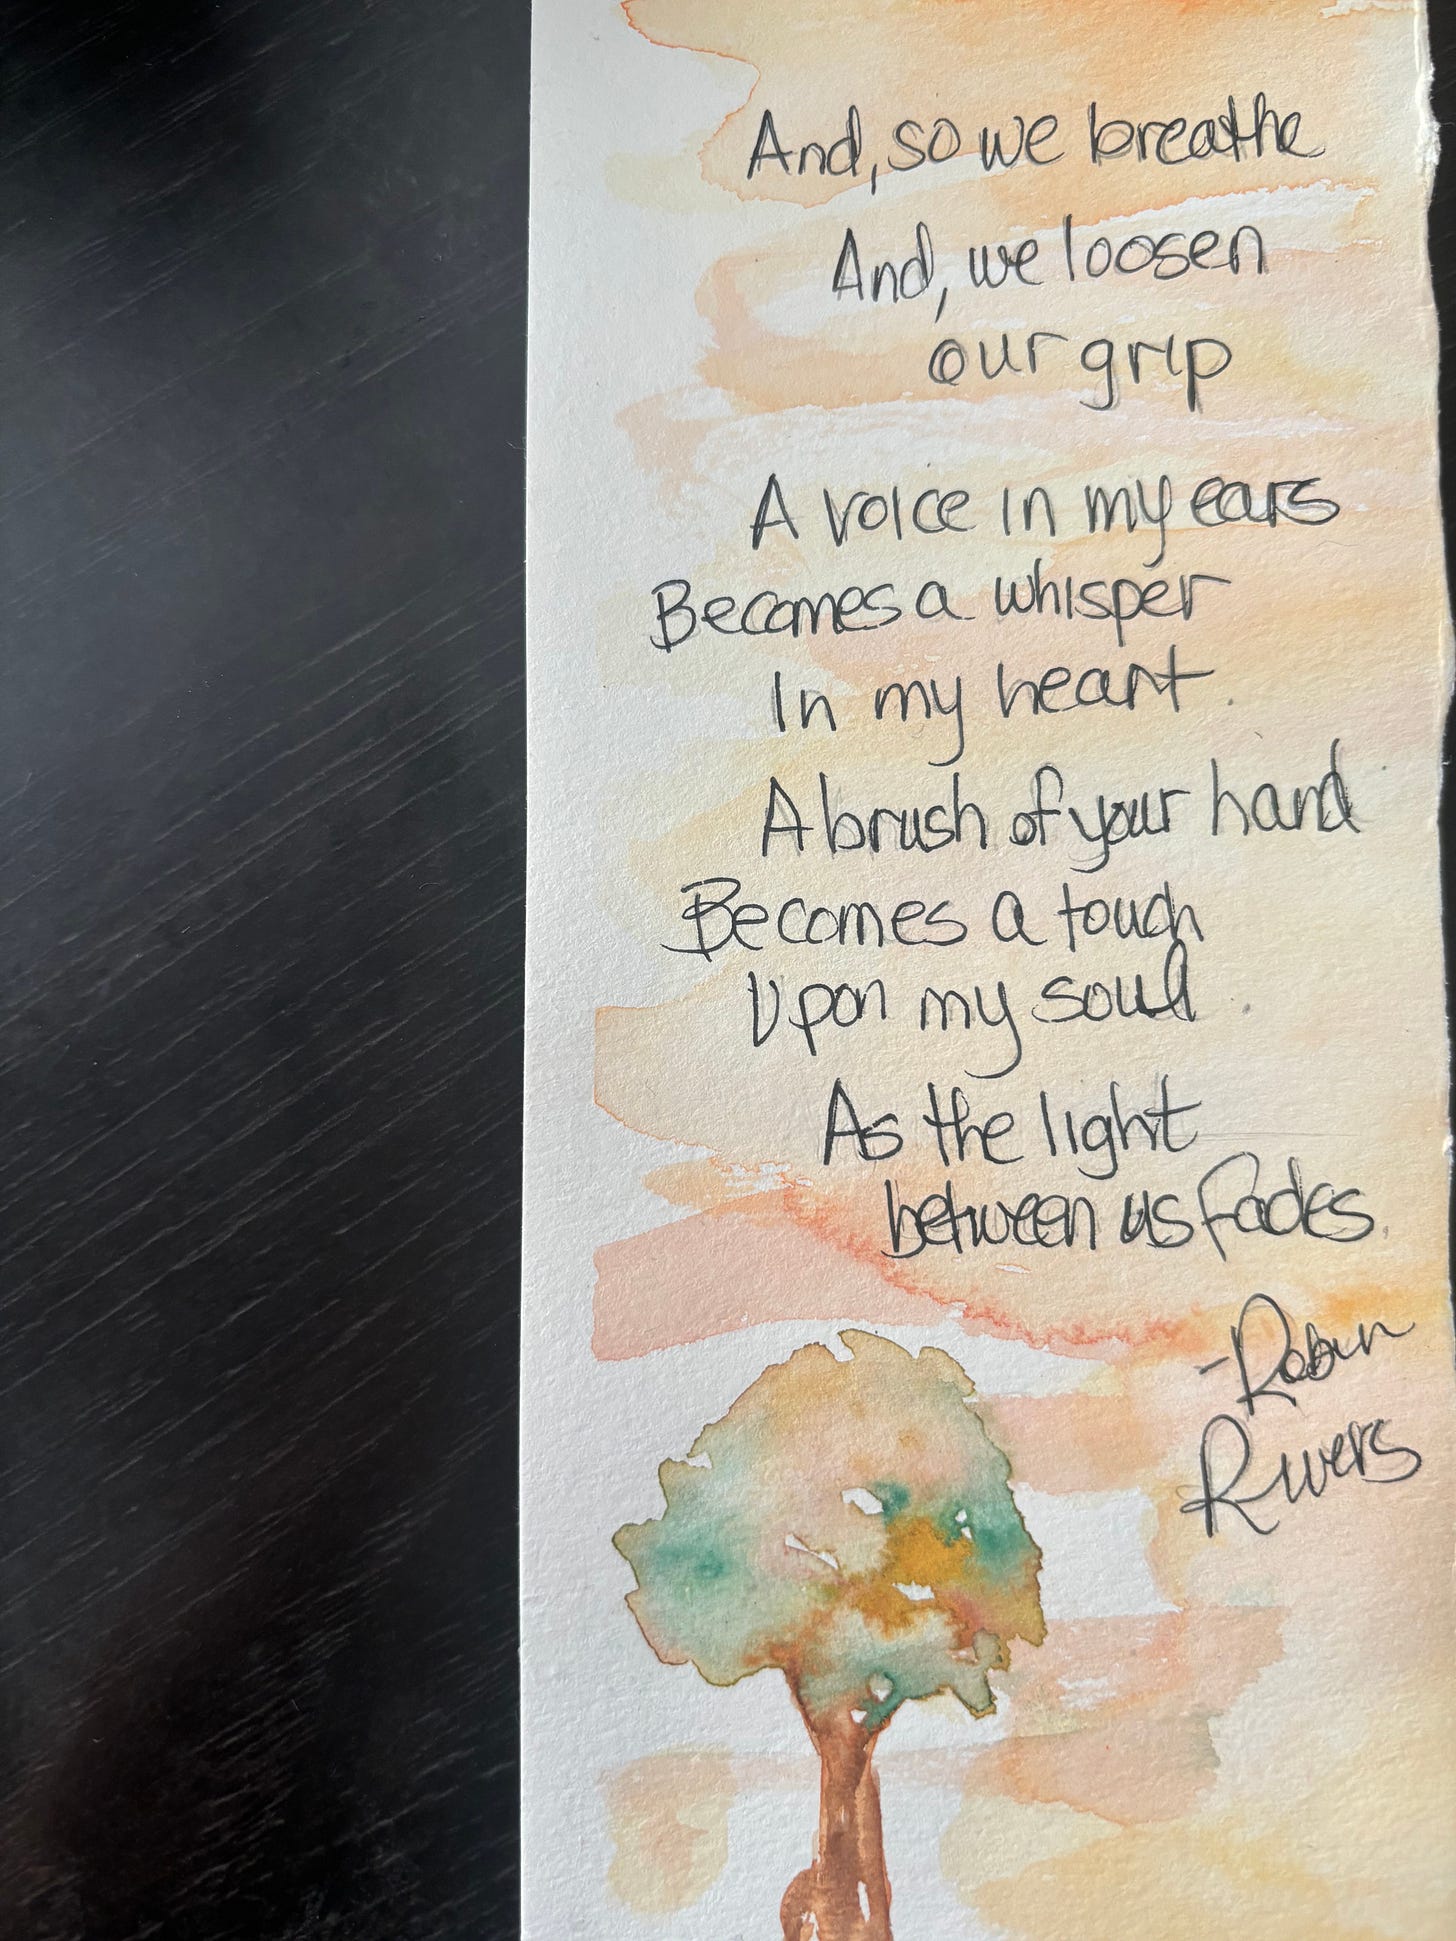 And, so we breathe
And, we loosen
our grip
A voice in my ears
Becomes a whisper
In my heart.
A brush of your hand
Becomes a touch
Upon my soul.
As the light
between us fades.
-Robin
Rivers